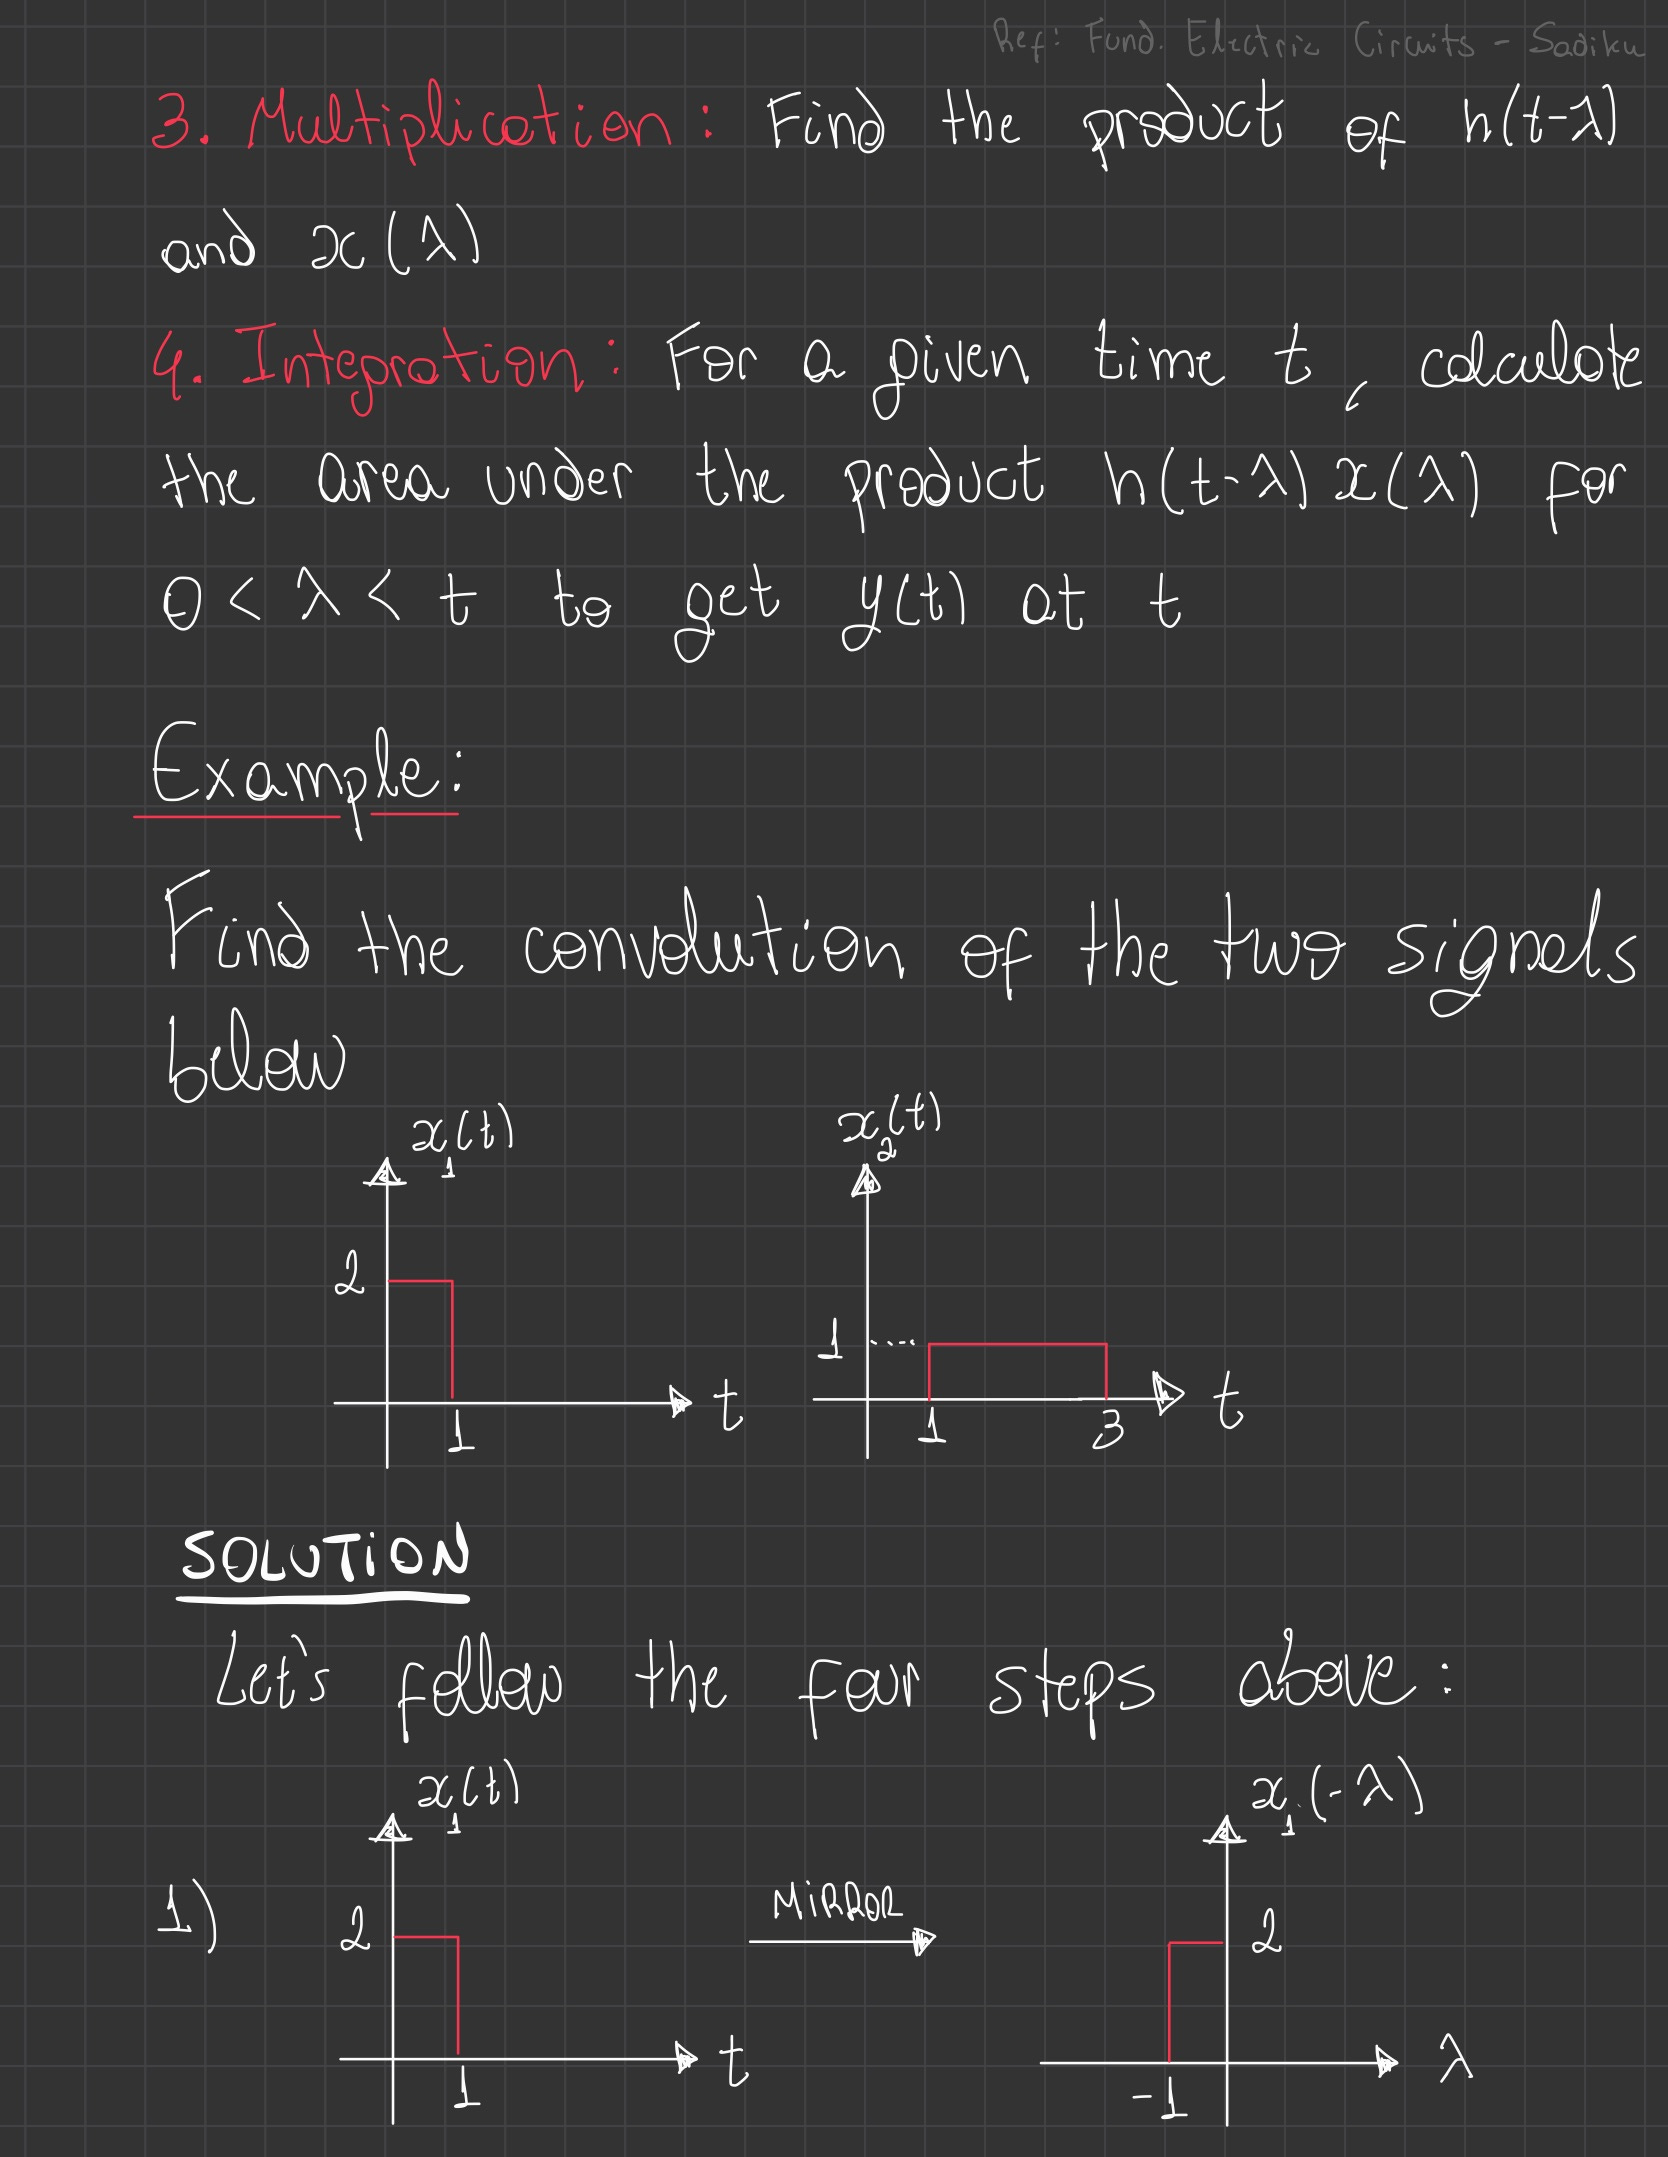 Ref: Fund. Electric Circuits - Sadiku
3. Multiplication: Find the product of h(t-λ)
and x(λ)
4. Integration: For a given time t, calculate
the area under the product h(t-λ)x(λ) for
0 < λ < t to get y(t) at t
Example:
Find the convolution of the two signals
below
x₁(t) x₂(t)
2
1
t t
1 1 3
SOLUTION
Let's follow the four steps above:
x₁(t) x₁(-λ)
1) 2 MIRROR 2
t λ
1 -1